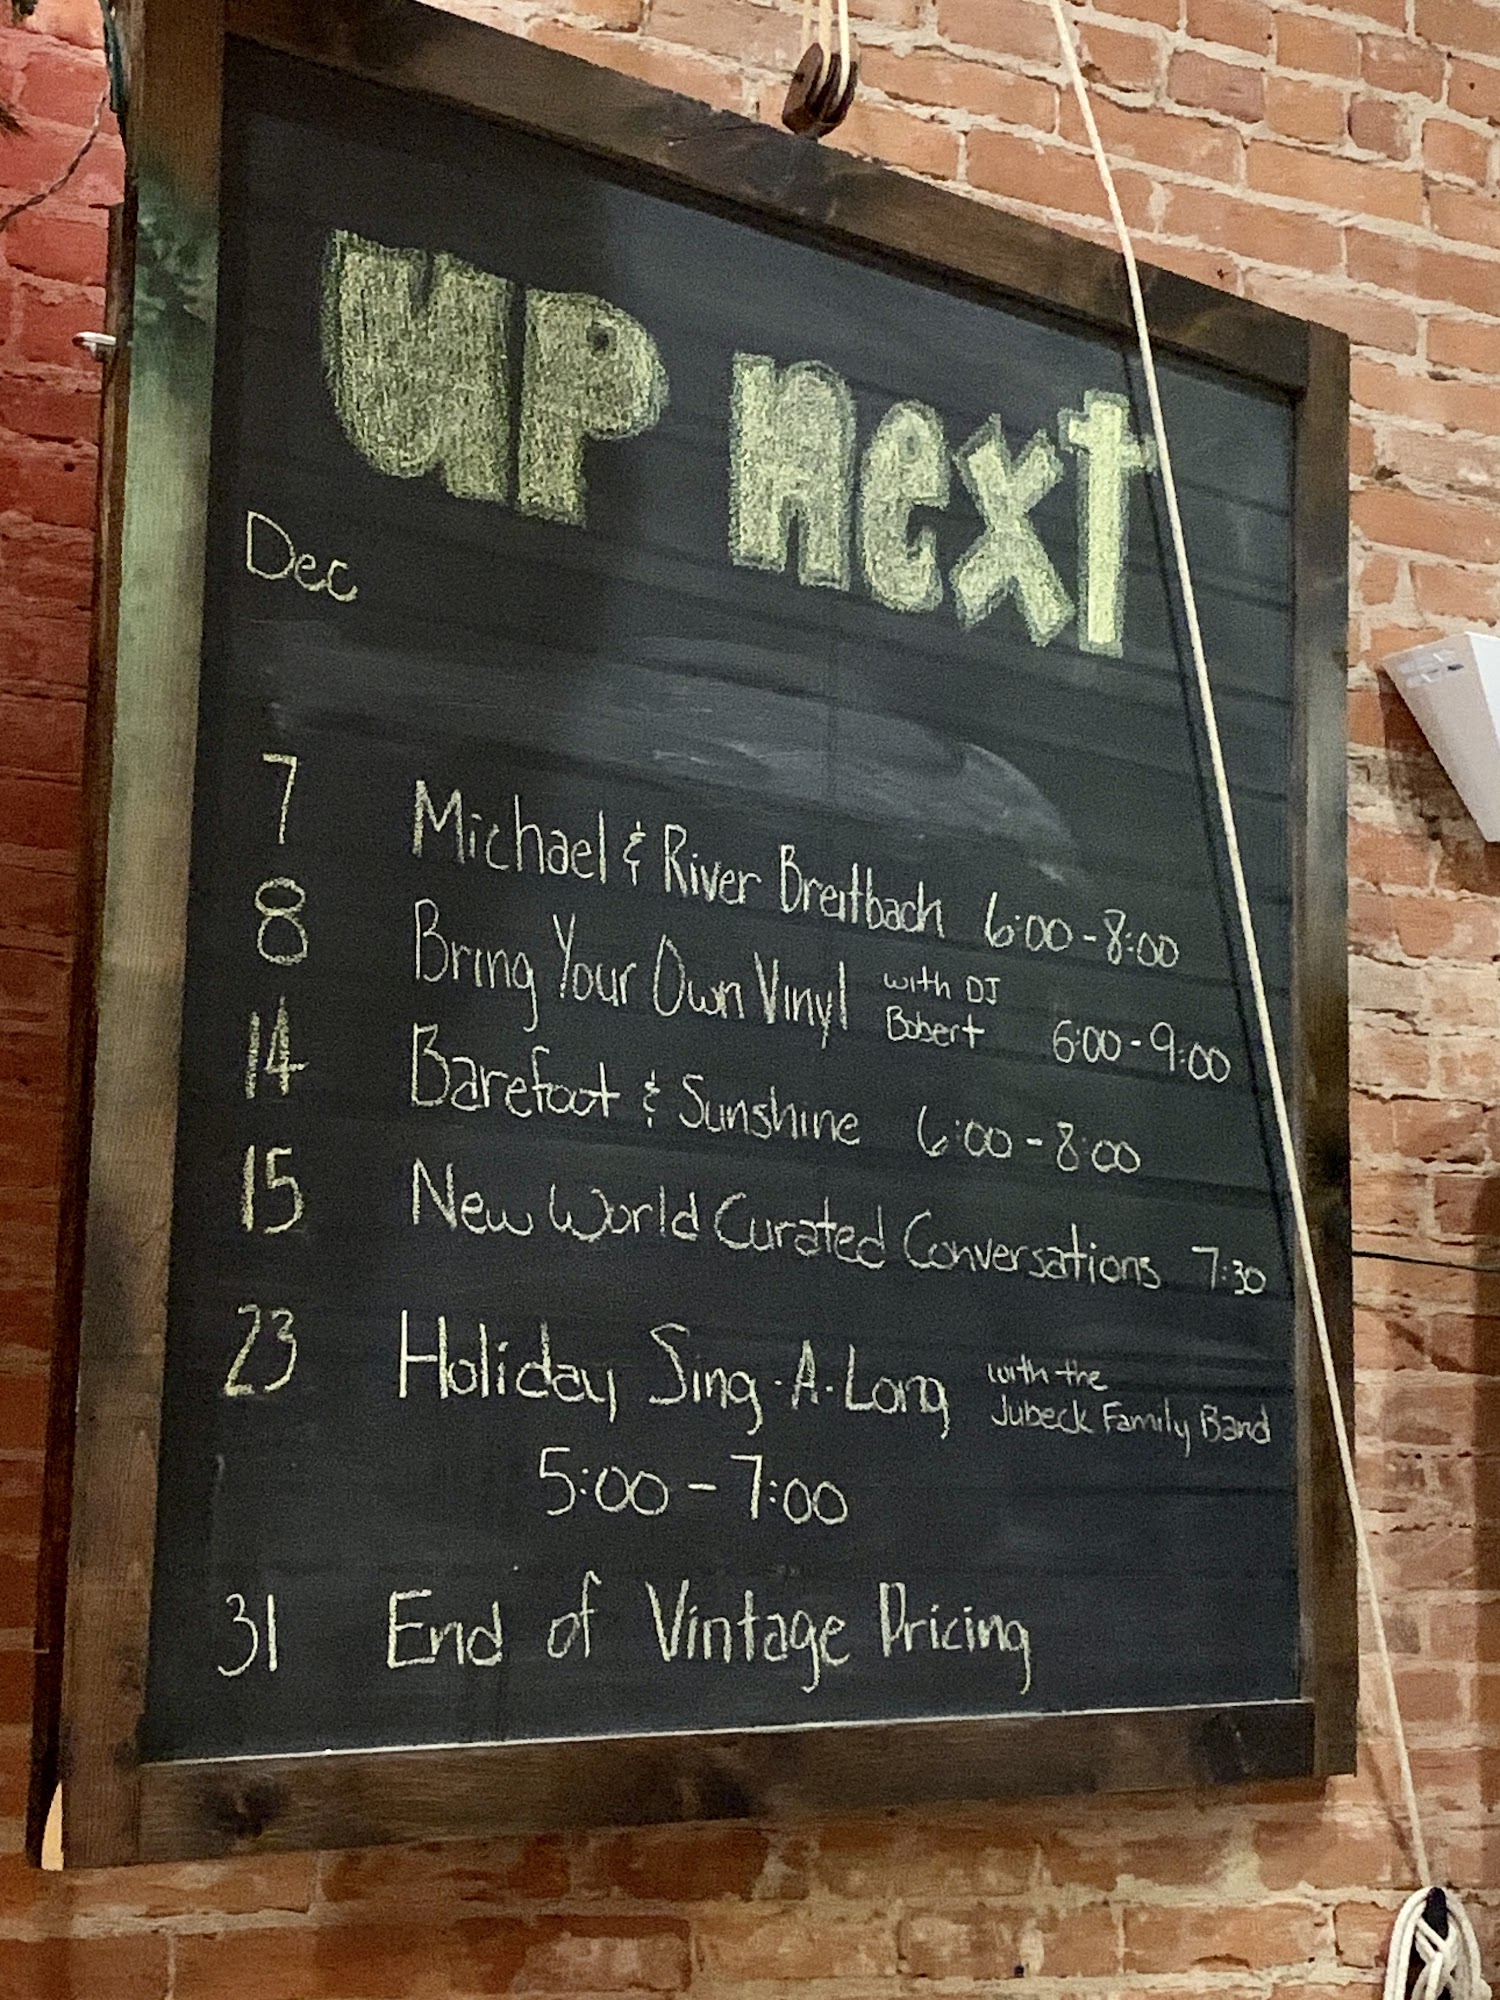 UP next
Dec
7 Michael & River Breitbach 6:00-8:00
8 Bring Your Own Vinyl with DJ Bobert 6:00-9:00
14 Barefoot & Sunshine 6:00-8:00
15 New World Curated Conversations 7:30
23 Holiday Sing-A-Long with the Jubeck Family Band
5:00-7:00
31 End of Vintage Pricing